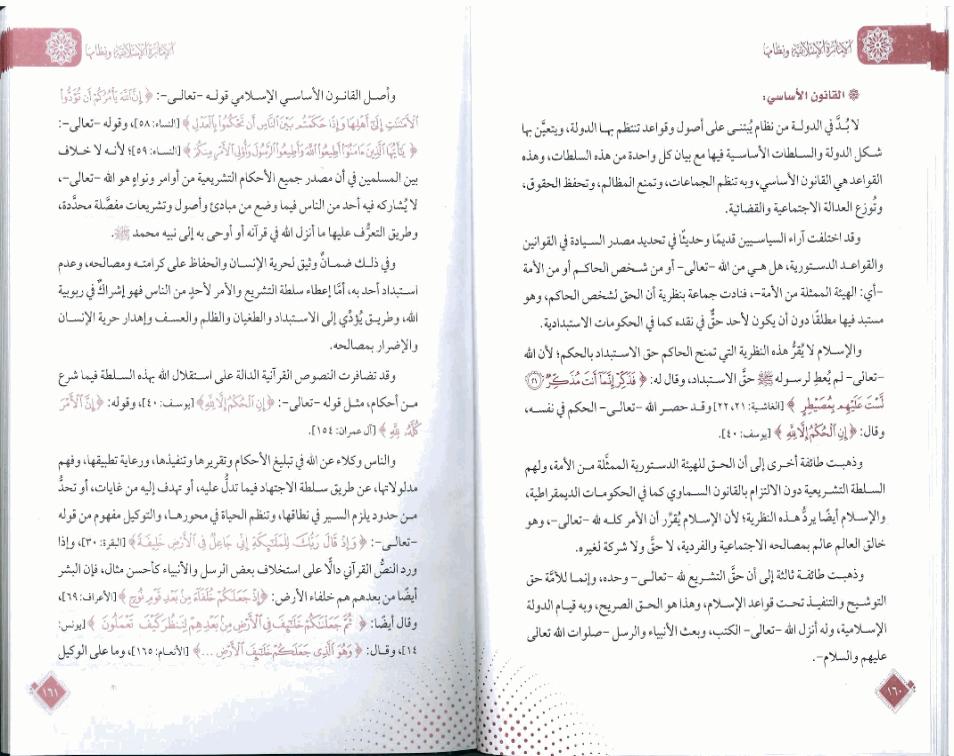 الإمامة الإسلامية ونظامها
القانون الأساسي:
لا بُدَّ في الدولة من نظام يُبتنى على أصول وقواعد تنتظم بها الدولة، ويتعيَّن بها
شكل الدولة والسلطات الأساسية فيها مع بيان كل واحدة من هذه السلطات، وهذه
القواعد هي القانون الأساسي، وبه تنظم الجماعات، وتمنع المظالم، وتحفظ الحقوق،
وتُوزع العدالة الاجتماعية والقضائية.
وقد اختلفت آراء السياسيين قديمًا وحديثًا في تحديد مصدر السيادة في القوانين
والقواعد الدستورية، هل هي من الله -تعالى- أو من شخص الحاكم أو من الأمة
-أي: الهيئة الممثلة من الأمة-، فنادت جماعة بنظرية أن الحق لشخص الحاكم، وهو
مستبد فيها مطلقًا دون أن يكون لأحد حقٌّ في نقده كما في الحكومات الاستبدادية.
والإسلام لا يُقرُّ هذه النظرية التي تمنح الحاكم حق الاستبداد بالحكم؛ لأن الله
-تعالى- لم يُعطِ لرسوله ﷺ حقَّ الاستبداد، وقال له: ﴿ فَذَكِّرْ إِنَّمَا أَنتَ مُذَكِّرٌ ۝٢١
لَّسْتَ عَلَيْهِم بِمُصَيْطِرٍ ﴾ [الغاشية: ٢١، ٢٢] وقد حصر الله -تعالى- الحكم في نفسه،
وقال: ﴿ إِنِ الْحُكْمُ إِلَّا لِلَّهِ ﴾ [يوسف: ٤٠].
وذهبت طائفة أخرى إلى أن الحق للهيئة الدستورية الممثَّلة من الأمة، ولهم
السلطة التشريعية دون الالتزام بالقانون السماوي كما في الحكومات الديمقراطية،
والإسلام أيضًا يردُّ هذه النظرية؛ لأن الإسلام يُقرَّر أن الأمر كله لله -تعالى-، وهو
خالق العالم عالم بمصالحه الاجتماعية والفردية، لا حقَّ ولا شركة لغيره.
وذهبت طائفة ثالثة إلى أن حقَّ التشريع لله -تعالى- وحده، وإنما للأمَّة حق
التوشيح والتنفيذ تحت قواعد الإسلام، وهذا هو الحق الصريح، وبه قيام الدولة
الإسلامية، وله أنزل الله -تعالى- الكتب، وبعث الأنبياء والرسل -صلوات الله تعالى
عليهم والسلام-.
١٦٠
الإمامة الإسلامية ونظامها
وأصل القانون الأساسي الإسلامي قوله -تعالى-: ﴿ إِنَّ اللَّهَ يَأْمُرُكُمْ أَن تُؤَدُّوا
الْأَمَانَاتِ إِلَىٰ أَهْلِهَا وَإِذَا حَكَمْتُم بَيْنَ النَّاسِ أَن تَحْكُمُوا بِالْعَدْلِ ﴾ [النساء: ٥٨]، وقوله -تعالى-:
﴿ يَا أَيُّهَا الَّذِينَ آمَنُوا أَطِيعُوا اللَّهَ وَأَطِيعُوا الرَّسُولَ وَأُولِي الْأَمْرِ مِنكُمْ ﴾ [النساء: ٥٩]؛ لأنه لا خلاف
بين المسلمين في أن مصدر جميع الأحكام التشريعية من أوامر ونواهٍ هو الله -تعالى-،
لا يُشاركه فيه أحد من الناس فيما وضع من مبادئ وأصول وتشريعات مفصَّلة محدَّدة،
وطريق التعرُّف عليها ما أنزل الله في قرآنه أو أوحى به إلى نبيه محمد ﷺ.
وفي ذلك ضمانٌ وثيق لحرية الإنسان والحفاظ على كرامته ومصالحه، وعدم
استبداد أحد به، أمَّا إعطاء سلطة التشريع والأمر لأحدٍ من الناس فهو إشراكٌ في ربوبية
الله، وطريق يُؤدِّي إلى الاستبداد والطغيان والظلم والعسف وإهدار حرية الإنسان
والإضرار بمصالحه.
وقد تضافرت النصوص القرآنية الدالة على استقلال الله بهذه السلطة فيما شرع
من أحكام، مثل قوله -تعالى-: ﴿ إِنِ الْحُكْمُ إِلَّا لِلَّهِ ﴾ [يوسف: ٤٠]، وقوله: ﴿ إِنَّ الْأَمْرَ
كُلَّهُ لِلَّهِ ﴾ [آل عمران: ١٥٤].
والناس وكلاء عن الله في تبليغ الأحكام وتقريرها وتنفيذها، ورعاية تطبيقها، وفهم
مدلولاتها، عن طريق سلطة الاجتهاد فيما تدلُّ عليه، أو تهدف إليه من غايات، أو تحدُّ
من حدود يلزم السير في نطاقها، وتنظم الحياة في محورها، والتوكيل مفهوم من قوله
-تعالى-: ﴿ وَإِذْ قَالَ رَبُّكَ لِلْمَلَائِكَةِ إِنِّي جَاعِلٌ فِي الْأَرْضِ خَلِيفَةً ﴾ [البقرة: ٣٠]، وإذا
ورد النصُّ القرآني دالًّا على استخلاف بعض الرسل والأنبياء كأحسن مثال، فإن البشر
أيضًا من بعدهم هم خلفاء الأرض: ﴿ إِذْ جَعَلَكُمْ خُلَفَاءَ مِن بَعْدِ قَوْمِ نُوحٍ ﴾ [الأعراف: ٦٩]،
وقال أيضًا: ﴿ ثُمَّ جَعَلْنَاكُمْ خَلَائِفَ فِي الْأَرْضِ مِن بَعْدِهِمْ لِنَنظُرَ كَيْفَ تَعْمَلُونَ ﴾ [يونس:
١٤]، وقال: ﴿ وَهُوَ الَّذِي جَعَلَكُمْ خَلَائِفَ الْأَرْضِ ... ﴾ [الأنعام: ١٦٥]، وما على الوكيل
١٦١